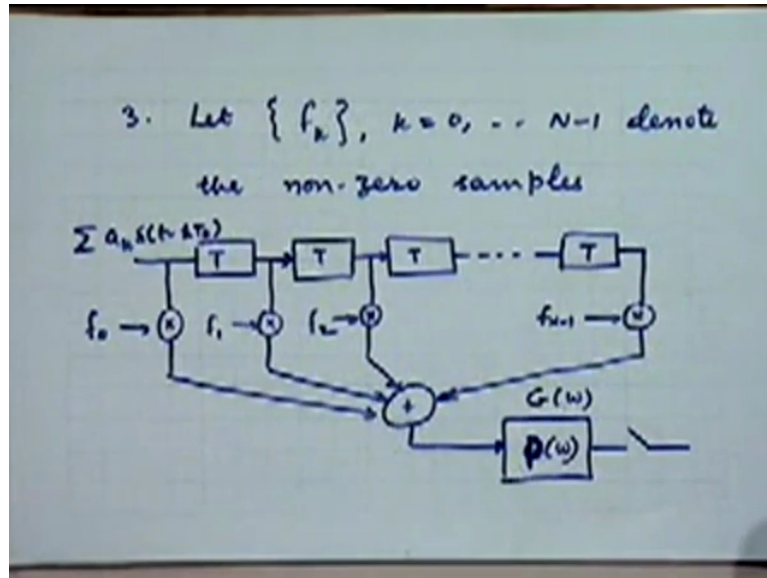 3. Let { fₖ }, k = 0, .. N-1 denote
the non-zero samples
Σ aₖ δ(t- kT₀)
T T T T
f₀ → × f₁ → × f₂ → × f_N-1 → ×
+
G(ω)
P(ω)